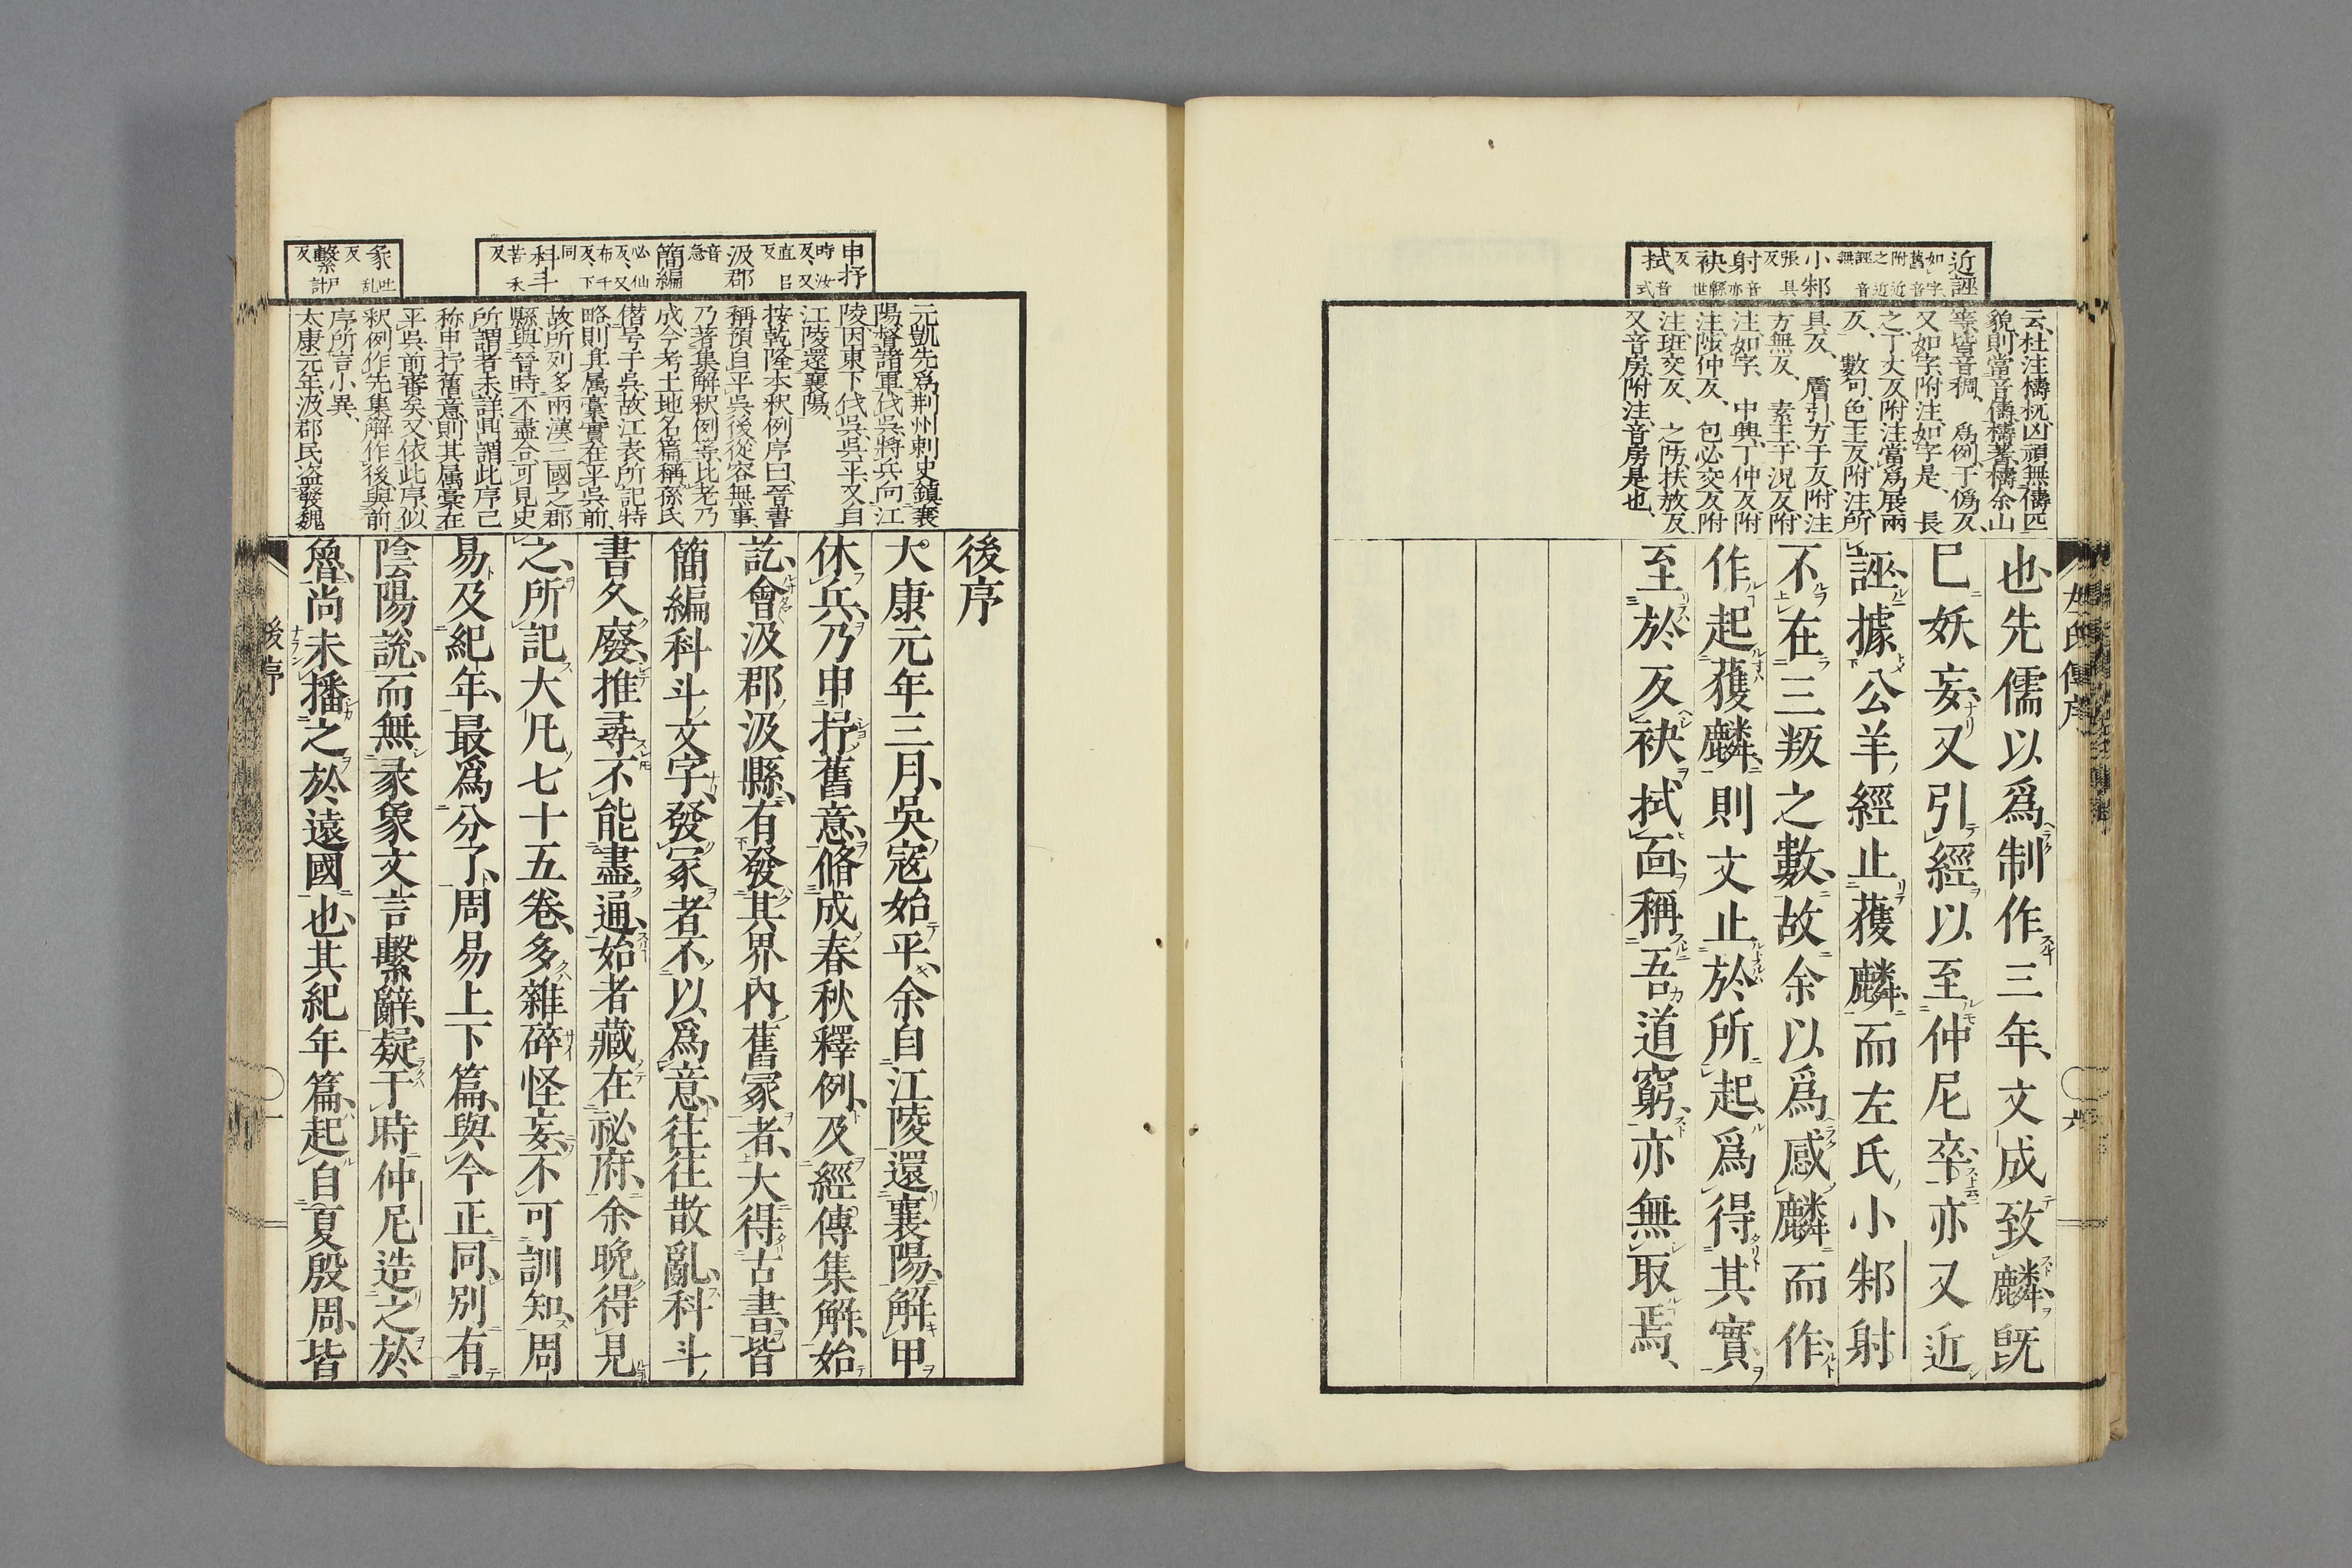 近誣
如字
舊音
附近
之近
誣音
無
小邾
張具
反
射
音亦
袂
緜世
反
拭
音式
云、杜注檮杌、凶頑無儔匹
貌、則當音儔、檮著檮余山
等、皆音稠、 爲例、于僞反、
又如字、附注、如字是、 長
之、丁丈反、附注、當爲展兩
反、 數句、色主反、附注、所
具反、 曆引、方于反、附注
方無反、 素王、于況反、附
注、如字、 中興、丁仲反、附
注、陟仲反、 包必交反、附
注、班交反、 之防、扶放反
又音房、附注、音房是也、
也先儒以爲制作三年、文成致麟既
已妖妄、又引經以至仲尼卒、亦又近
誣、據公羊經止獲麟、而左氏小邾射
不在三叛之數、故余以爲感麟而作、
作起獲麟、則文止於所起、爲得其實、
至於反袂拭面、稱吾道窮、亦無取焉、
六
申抒
時汝
反、又
直呂
反
汲郡
音急
簡編
必仙
反、又
布千
反、下
同
科斗
苦禾
反
彖
吐亂
反
繫
戶計
反
元凱先爲荆州刺史、鎮襄
陽、督諸軍伐吳、將兵向江
陵、因東下伐吳、吳平、又自
江陵還襄陽、
按乾隆本釈例序曰、晉書
稱預自平吳後從容無事、
乃著集解釈例等、比老乃
成、今考土地名篇、稱孫氏
僣号于吳、故江表所記特
略、則其属稾實在平吳前、
故所列多兩漢三國之郡
縣、與晉時不盡合、可見史
所謂者未詳、鼎謂此序己
称申抒舊意、則其属稾在
平吳前審矣、又依此序、似
釈例作先、集解作後、與前
序所言小異、
太康元年、汲郡民盗發魏
後序
大康元年三月、吳寇始平、余自江陵還襄陽、解甲
休兵、乃申抒舊意、脩成春秋釋例、及經傳集解、始
訖、會汲郡汲縣、有發其界內舊冢者、大得古書、皆
簡編科斗文字、發冢者不以爲意、往往散亂、科斗
書久廢、推尋不能盡通、始者藏在祕府、余晚得見
之、所記大凡七十五卷、多雜碎怪妄、不可訓知、周
易及紀年、最爲分了、周易上下篇、與今正同、別有
陰陽說、而無彖象文言繫辭、疑于時仲尼造之於
魯、尚未播之於遠國也、其紀年篇、起自夏殷周、皆
後序
一